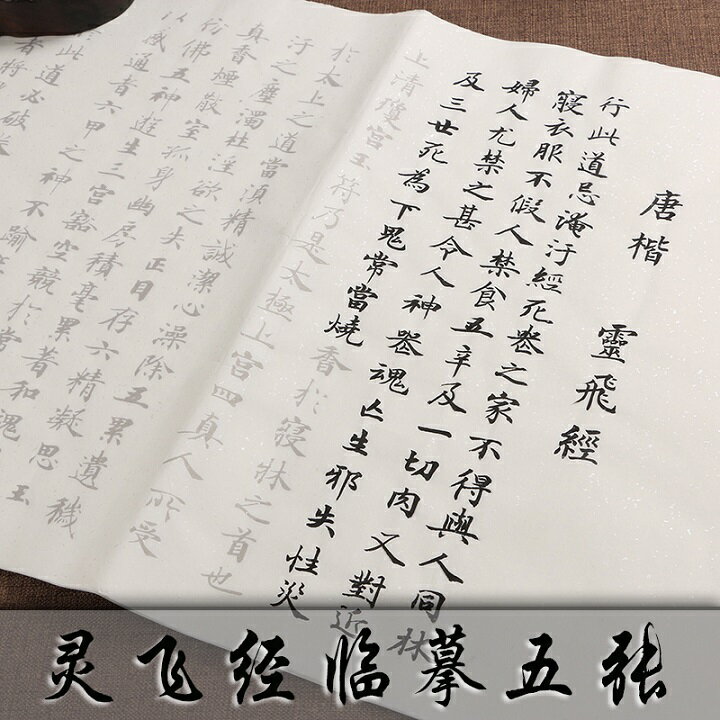 唐楷 靈飛經
行此道忌淹汙經死喪之家不得與人同牀
寢衣服不假人禁食五辛及一切肉又對近
婦人尤禁之甚令人神喪魂亡生邪失性災
及三世死為下鬼常當燒香於寢牀之首也
上清瓊宮玉符乃是太極上宮四真人所受
於太上之道當須精誠潔心澡除五累遺穢
汙之塵濁杜淫欲之失正目存六精凝思玉
真香煙散室孤身幽房積毫累著和魂
彷佛五神遊生三宮豁空競於常
以感通者六甲之神不踰
此道必破
者將
灵飞经临摹五张